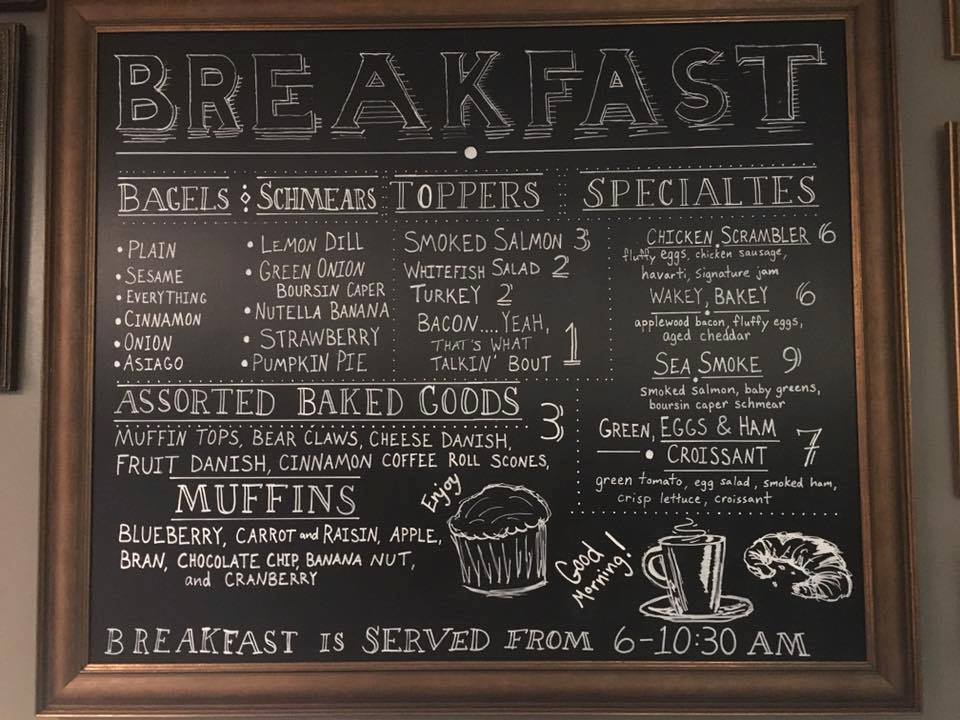 BREAKFAST
BAGELS
PLAIN
SESAME
EVERYTHING
CINNAMON
ONION
ASIAGO
SCHMEARS
LEMON DILL
GREEN ONION
BOURSIN CAPER
NUTELLA BANANA
STRAWBERRY
PUMPKIN PIE
TOPPERS
SMOKED SALMON 3
WHITEFISH SALAD 2
TURKEY 2
BACON....YEAH,
THAT'S WHAT
TALKIN' BOUT 1
SPECIALTES
CHICKEN SCRAMBLER 6
fluffy eggs, chicken sausage,
havarti, signature jam
WAKEY, BAKEY 6
applewood bacon, fluffy eggs,
aged cheddar
SEA SMOKE 9
smoked salmon, baby greens,
boursin caper schmear
GREEN, EGGS & HAM
CROISSANT 7
green tomato, egg salad, smoked ham,
crisp lettuce, croissant
ASSORTED BAKED GOODS 3
MUFFIN TOPS, BEAR CLAWS, CHEESE DANISH,
FRUIT DANISH, CINNAMON COFFEE ROLL SCONES,
MUFFINS
BLUEBERRY, CARROT and RAISIN, APPLE,
BRAN, CHOCOLATE CHIP, BANANA NUT,
and CRANBERRY
Enjoy
Good
Morning!
BREAKFAST IS SERVED FROM 6-10:30 AM